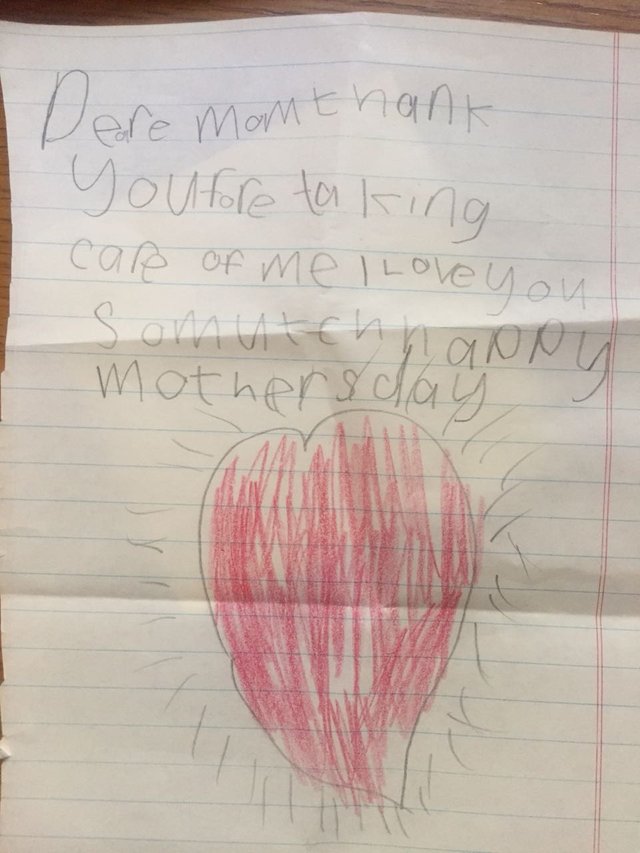 Deare mom thank
you fore taking
care of me I Love you
so mutch happy
mothers day